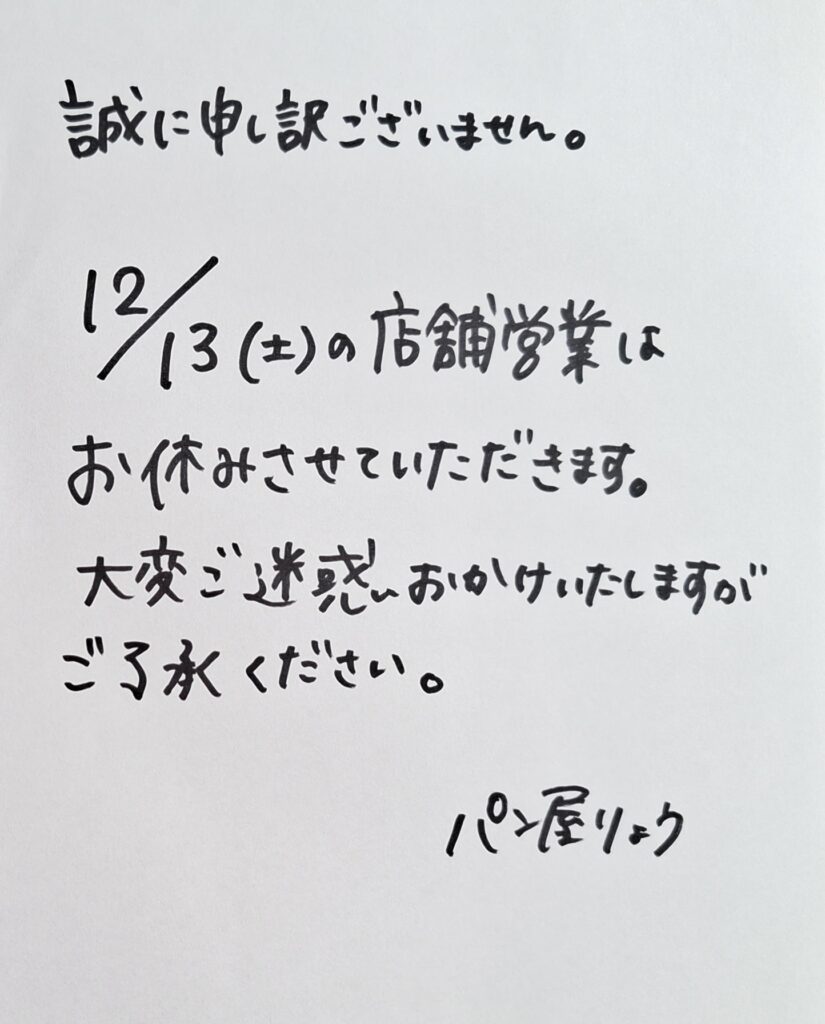 誠に申し訳ございません。
12/13(土)の店舗営業は
お休みさせていただきます。
大変ご迷惑おかけいたしますが
ご了承ください。
パン屋りょう